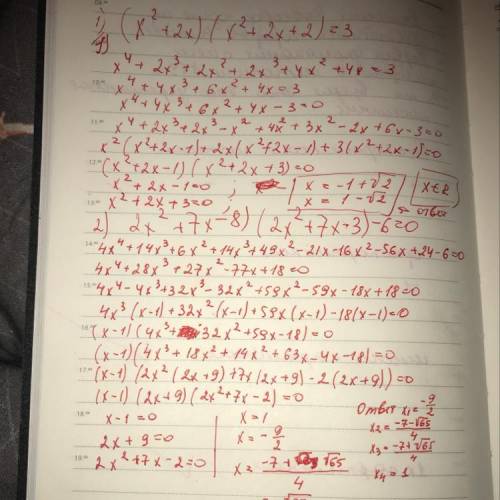 1) (x² + 2x) (x² + 2x + 2) = 3
x⁴ + 2x³ + 2x² + 2x³ + 4x² + 4x = 3
x⁴ + 4x³ + 6x² + 4x = 3
x⁴ + 4x³ + 6x² + 4x - 3 = 0
x⁴ + 2x³ + 2x³ - x² + 4x² + 3x² - 2x + 6x - 3 = 0
x² (x² + 2x - 1) + 2x (x² + 2x - 1) + 3 (x² + 2x - 1) = 0
(x² + 2x - 1) (x² + 2x + 3) = 0
x² + 2x - 1 = 0 ; x = -1 + √2 x∈R
x² + 2x + 3 = 0 x = 1 - √2 ответ
2) 2x² + 7x - 8) (2x² + 7x - 3) - 6 = 0
4x⁴ + 14x³ + 6x² + 14x³ + 49x² - 21x - 16x² - 56x + 24 - 6 = 0
4x⁴ + 28x³ + 27x² - 77x + 18 = 0
4x⁴ - 4x³ + 32x³ - 32x² + 59x² - 59x - 18x + 18 = 0
4x³ (x - 1) + 32x² (x - 1) + 59x (x - 1) - 18 (x - 1) = 0
(x - 1) (4x³ + 32x² + 59x - 18) = 0
(x - 1) (4x³ + 18x² + 14x² + 63x - 4x - 18) = 0
(x - 1) (2x² (2x + 9) + 7x (2x + 9) - 2 (2x + 9)) = 0
(x - 1) (2x + 9) (2x² + 7x - 2) = 0
x - 1 = 0 x = 1 Ответ x₁ = -9/2
2x + 9 = 0 x = -9/2 x₂ = -7-√65/4
2x² + 7x - 2 = 0 x = -7 + √65/4 x₃ = -7+√65/4
x₄ = 1